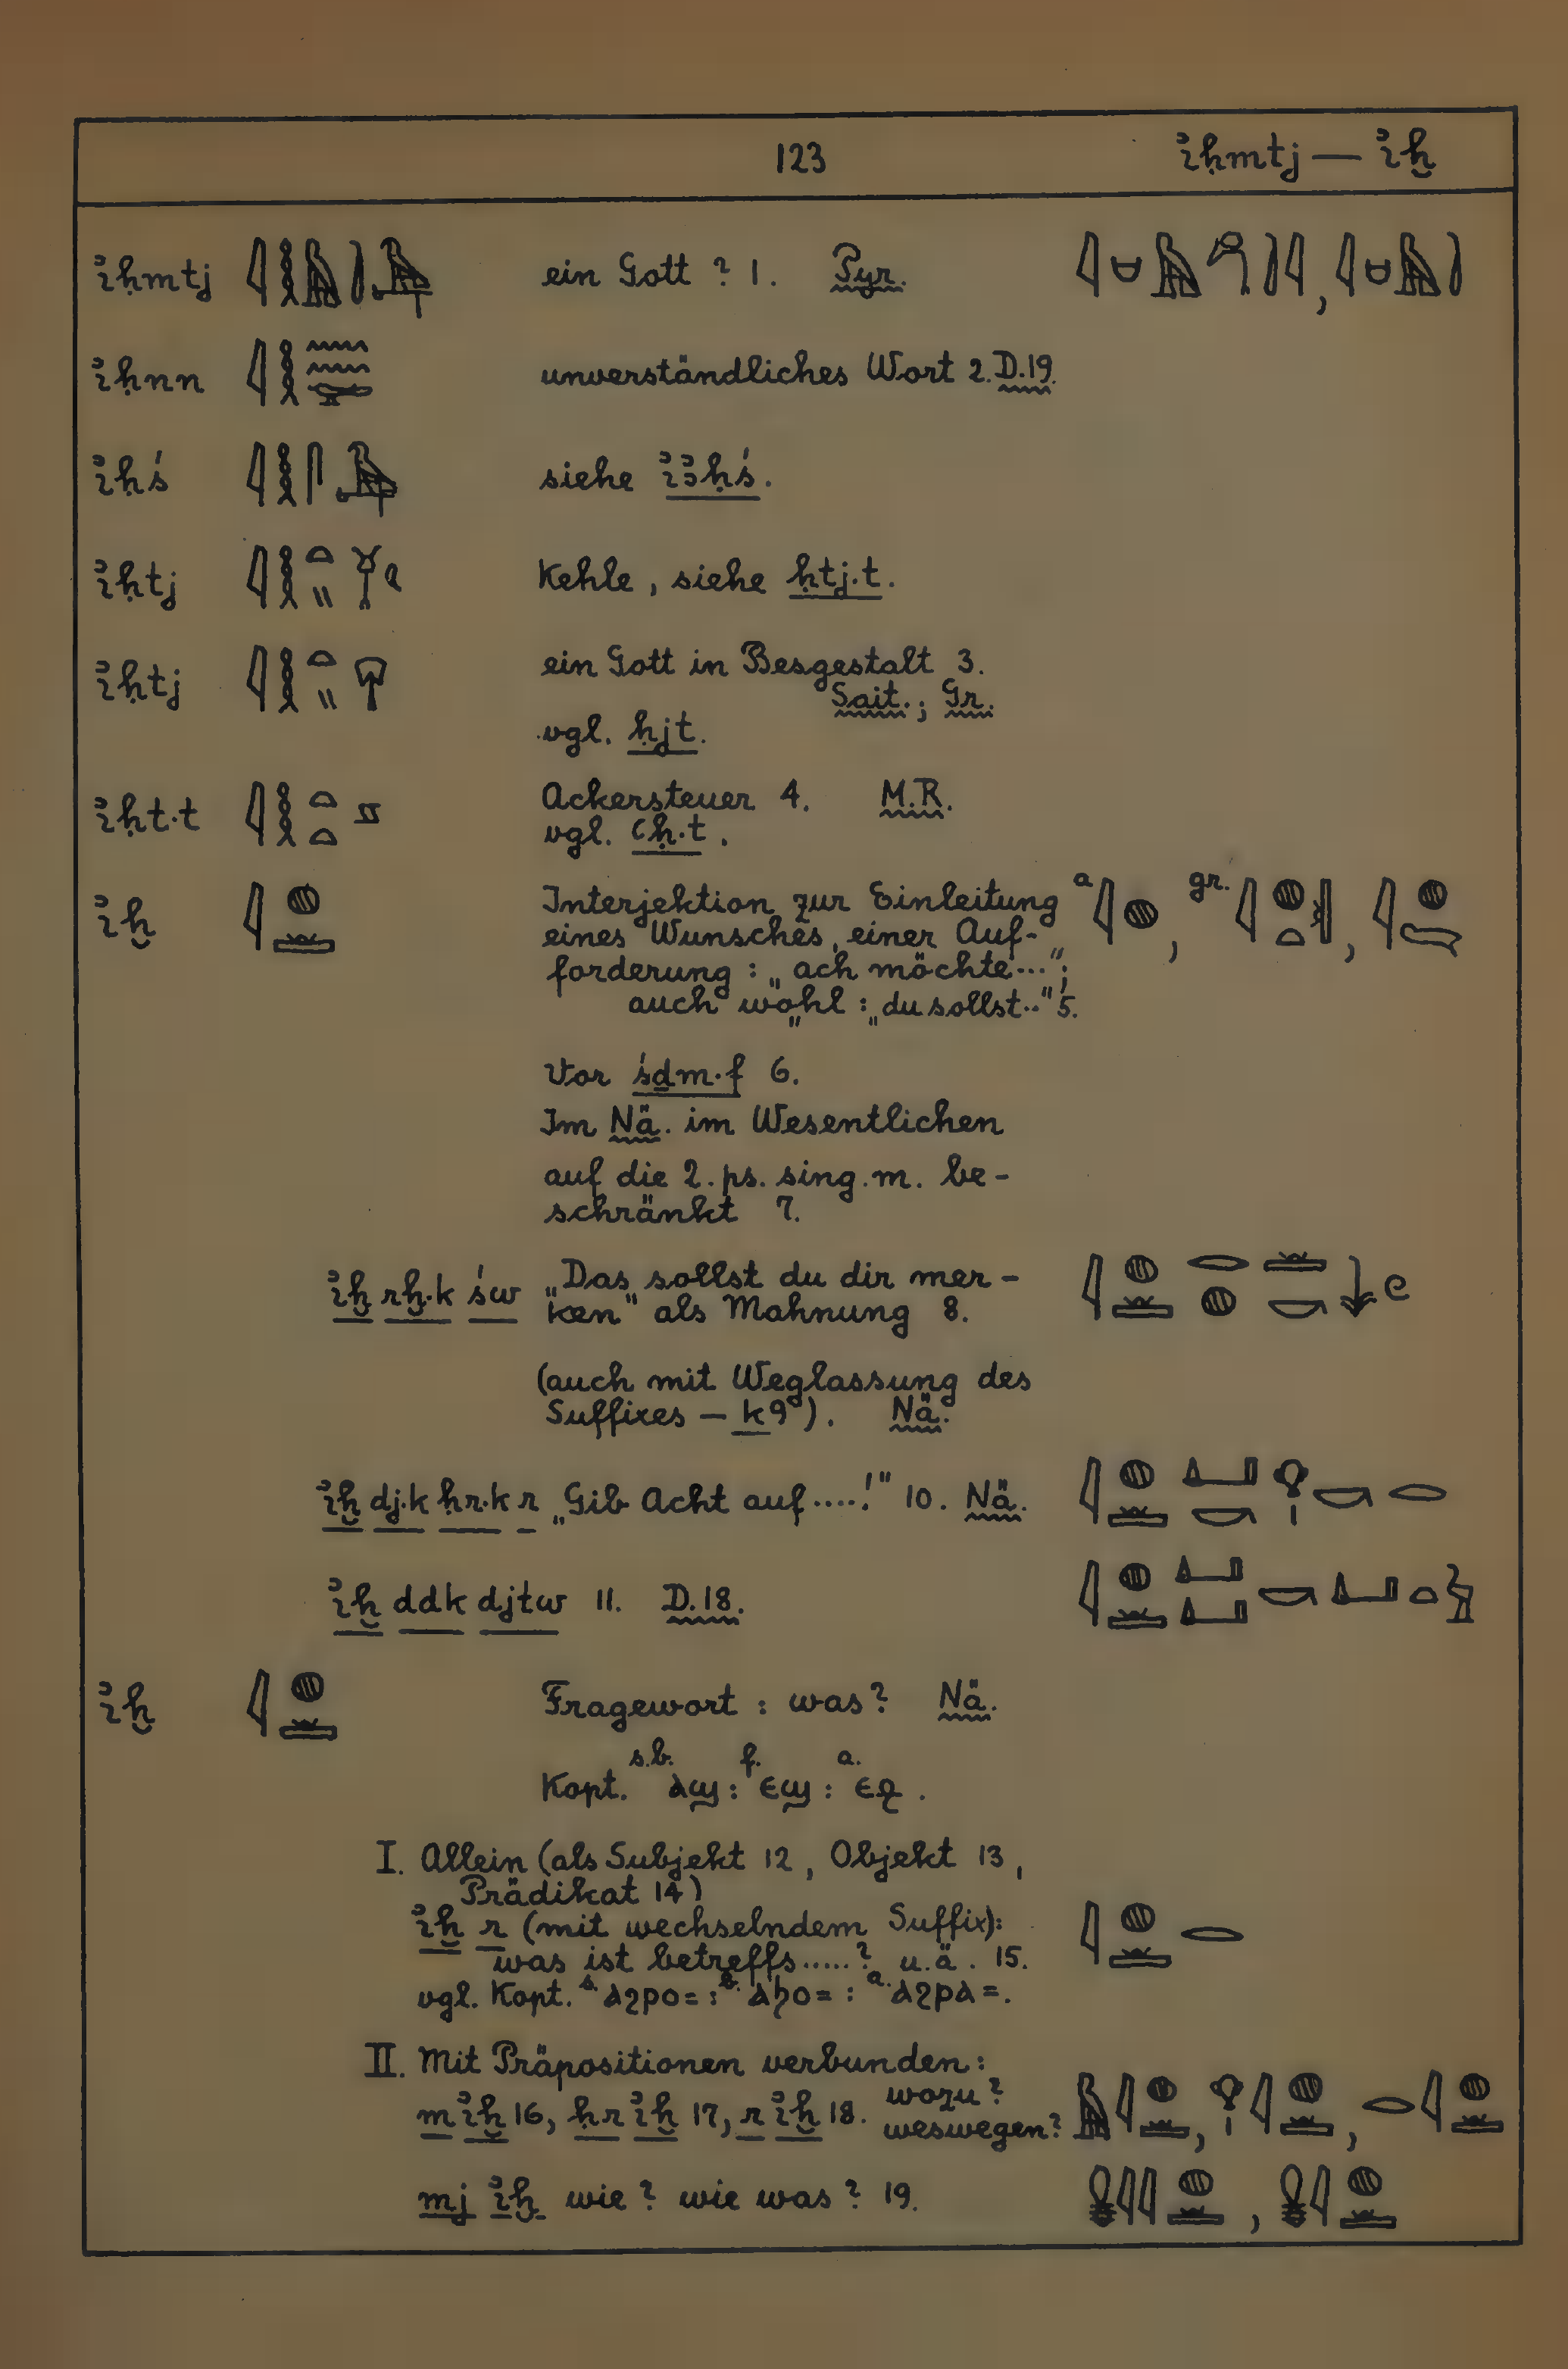 123 ꞽḥmtj — ꞽḫ
ꞽḥmtj ein Gott ? 1. Pyr.
ꞽḥnn unverständliches Wort 2. D.19.
ꞽḥś siehe ꞽꜣḥś.
ꞽḥtj Kehle, siehe ḥtj.t.
ꞽḥtj ein Gott in Besgestalt 3.
Sait.; Gr.
vgl. ḥjt.
ꞽḥt.t Ackersteuer 4. M.R.
vgl. ꜥḥ.t.
ꞽḫ Interjektion zur Einleitung a , gr. ,
eines Wunsches, einer Auf-
forderung : „ach möchte...";
auch wohl : „du sollst.." 5.
Vor śḏm.f 6.
Im Nä. im Wesentlichen
auf die 2. ps. sing. m. be-
schränkt 7.
ꞽḫ rḫ.k św „Das sollst du dir mer-
ken" als Mahnung 8.
(auch mit Weglassung des
Suffixes – k 9). Nä.
ꞽḫ dj.k ḥr.k r „Gib Acht auf....!" 10. Nä.
ꞽḫ ddk djtw 11. D.18.
ꞽḫ Fragewort : was? Nä.
Kopt. s.b. ⲁϣ : f. ⲉϣ : a. ⲉϩ .
I. Allein (als Subjekt 12, Objekt 13,
Prädikat 14)
ꞽḫ r (mit wechselndem Suffix):
was ist betreffs.....? u.ä. 15.
vgl. Kopt. s. ⲁϩⲣⲟ= : b. ⲁϧⲟ= : a. ⲁϩⲣⲁ=.
II. Mit Präpositionen verbunden:
m ꞽḫ 16, ḥr ꞽḫ 17, r ꞽḫ 18. wozu?
weswegen?
mj ꞽḫ wie? wie was? 19.